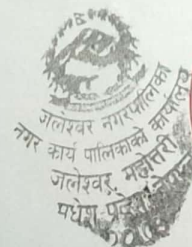 जलेश्वर नगरपालिका
नगर कार्य पालिकाको कार्यालय
जलेश्वर, महोत्तरी
मधेश प्रदेश, नेपाल